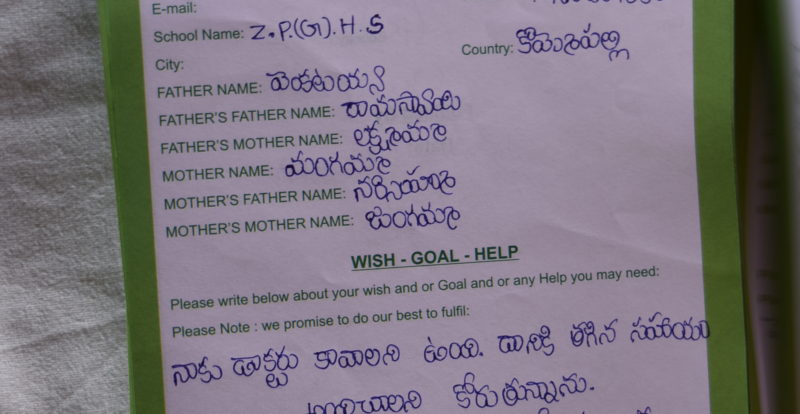 E-mail:
School Name: Z.P.(G).H.S
Country: కొమెరపల్లి
City:
FATHER NAME: వెంకటయ్య
FATHER'S FATHER NAME: రామస్వామి
FATHER'S MOTHER NAME: లక్ష్మమ్మ
MOTHER NAME: మంగమ్మ
MOTHER'S FATHER NAME: నర్సయ్య
MOTHER'S MOTHER NAME: జంగమ్మ
WISH - GOAL - HELP
Please write below about your wish and or Goal and or any Help you may need:
Please Note : we promise to do our best to fulfil:
నాకు డాక్టర్ కావాలని ఉంది. దానికి తగిన సహాయం
అందించాలని కోరుతున్నాను.